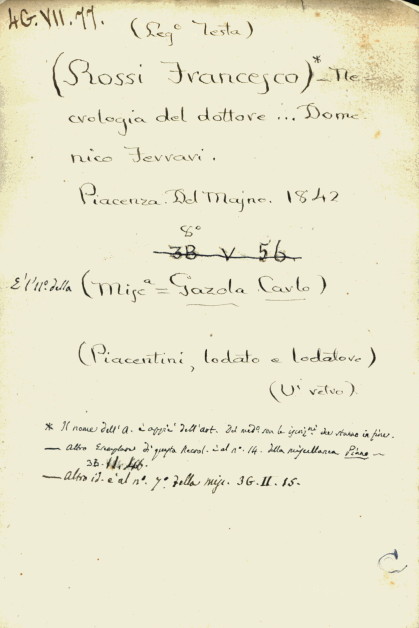 4G.VII.77.
(Leg.º Testa)
(Rossi Francesco)* — Ne-
crologia del dottore ... Dome-
nico Ferrari.
Piacenza. Del Majno. 1842
8º
3B V 56
E' l' 11º. della (Miscª = Gazola Carlo).
(Piacentini, lodato e lodatore)
(V' retro).
* Il nome dell' A. è appiè dell' art. Del medº. son le iscrizni. che stanno in fine.
— altro Esemplare di questa Necrol. è al nº. 14. della miscellanea Piano —
3B. II. 46.
— Altro id. è al nº. 7º. della misc. 3G. II. 15.
C